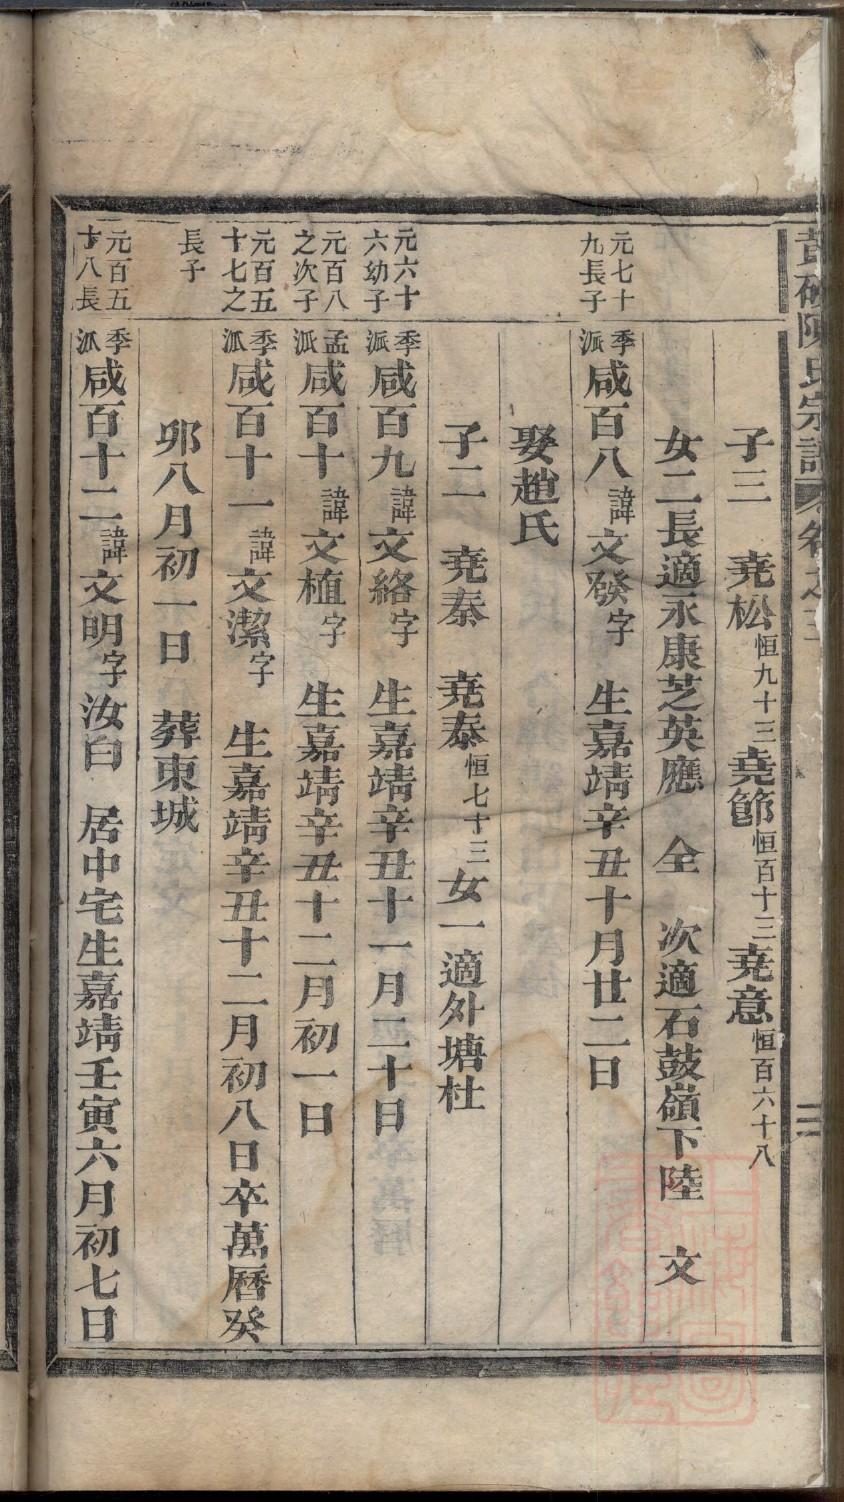 陳氏宗譜 卷之三
子三 堯松恒九十三堯節恒百十三堯意恒百六十八
女二長適永康芝英應 仝 次適石鼓嶺下陸 文
元七十九長子
季派咸百八諱文發字 生嘉靖辛丑十月廿二日
娶趙氏
子二 堯秦 堯泰恒七十三女一適外塘杜
元六十六幼子
季派咸百九諱文絡字 生嘉靖辛丑十一月二十日
元百八之次子
孟派咸百十諱文植字 生嘉靖辛丑十二月初一日
元百五十七之長子
季派咸百十一諱文潔字 生嘉靖辛丑十二月初八日卒萬曆癸
卯八月初一日 葬東城
元百五十八長
季派咸百十二諱文明字汝白 居中宅生嘉靖壬寅六月初七日